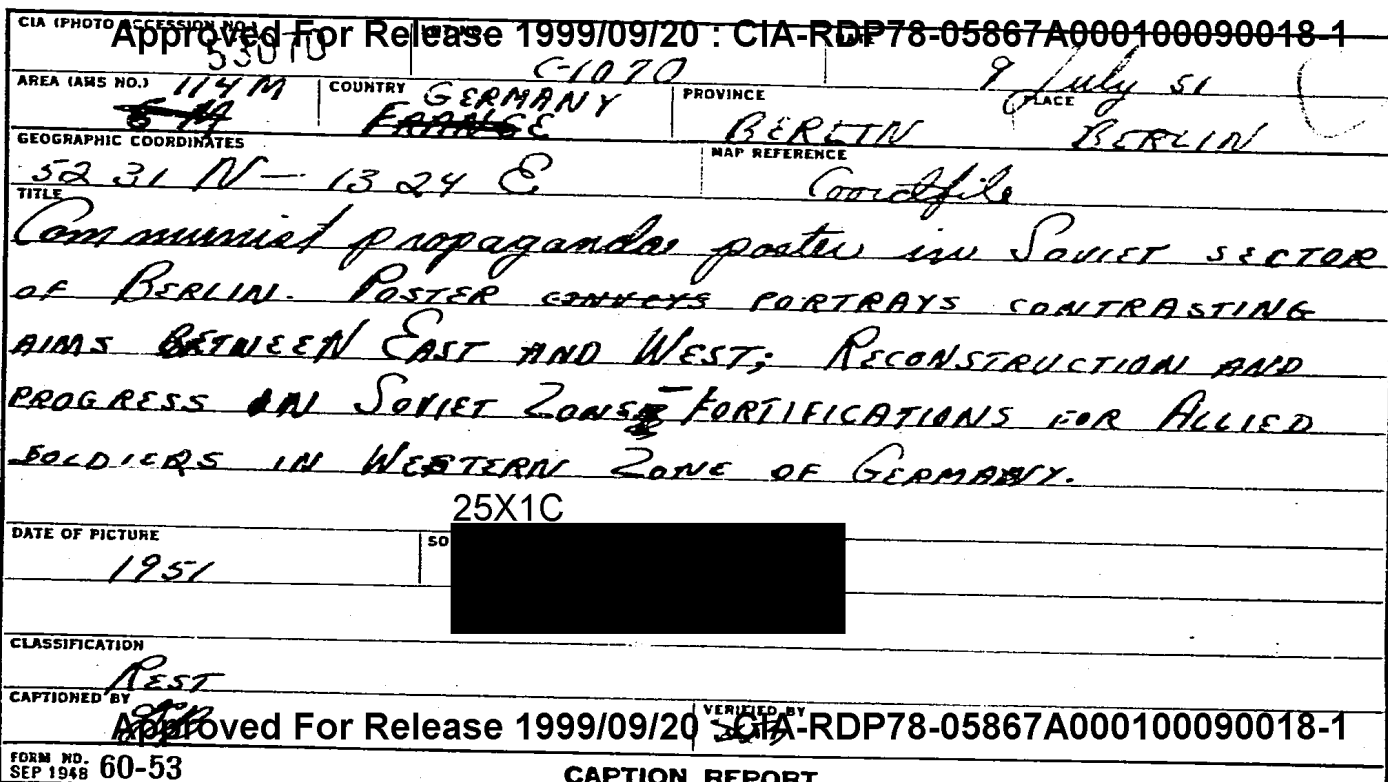 CIA (PHOTO ACCESSION NO.)
Approved For Release 1999/09/20 : CIA-RDP78-05867A000100090018-1
C-1070 9 July 51
AREA (AMS NO.) 114M COUNTRY GERMANY FRANCE PROVINCE BERLIN PLACE BERLIN
GEOGRAPHIC COORDINATES 52 31 N — 13 24 E MAP REFERENCE
TITLE
Communist propaganda poster in SOVIET SECTOR
OF BERLIN. POSTER CONVEYS PORTRAYS CONTRASTING
AIMS BETWEEN EAST AND WEST; RECONSTRUCTION AND
PROGRESS IN SOVIET ZONE - FORTIFICATIONS FOR ALLIED
SOLDIERS IN WESTERN ZONE OF GERMANY.
25X1C
DATE OF PICTURE 1951 SO
CLASSIFICATION
REST
CAPTIONED BY VERIFIED BY
Approved For Release 1999/09/20 : CIA-RDP78-05867A000100090018-1
FORM NO. SEP 1948 60-53
CAPTION REPORT